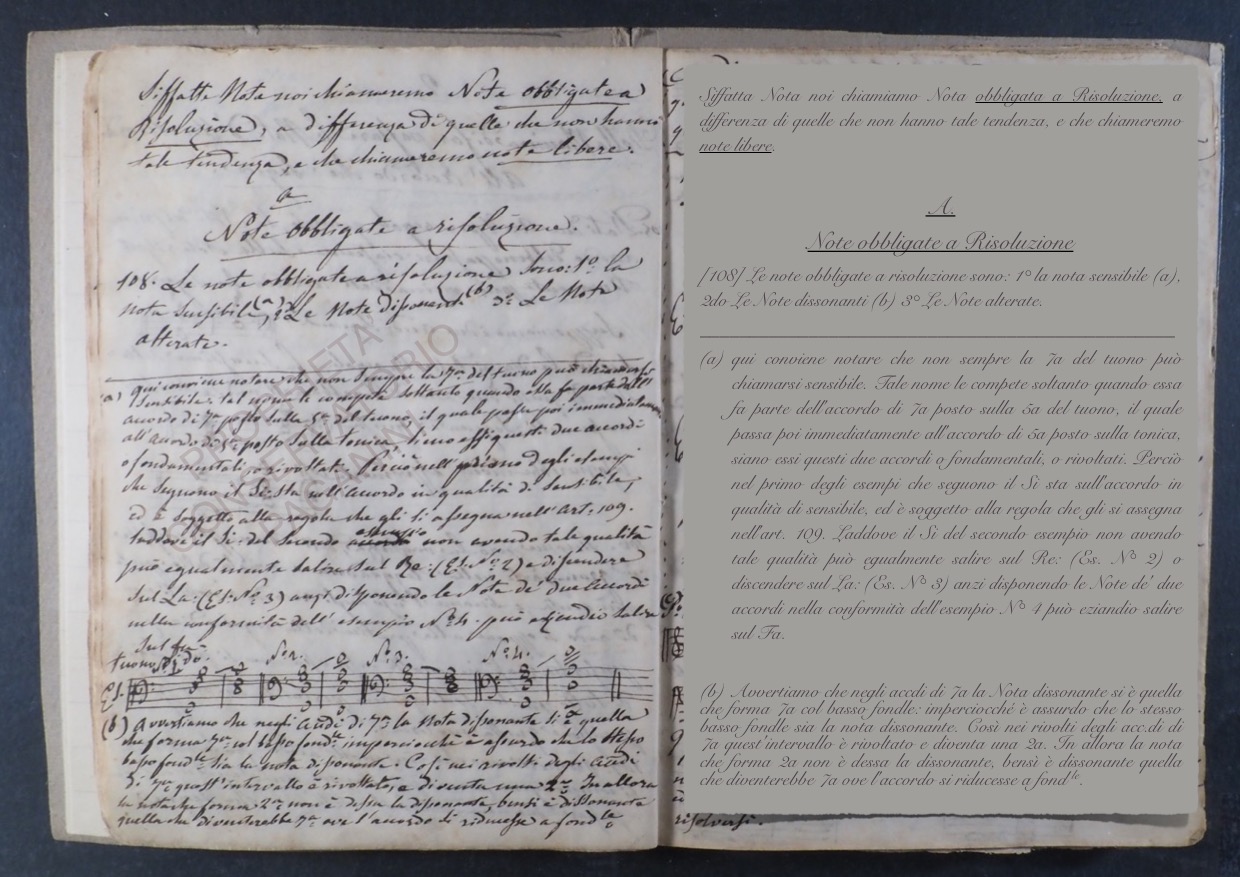 Siffatte Note noi chiameremo Note obbligate a
Risoluzione, a differenza di quelle che non hanno
tale tendenza, e che chiameremo note libere.
a
Note obbligate a risoluzione.
108. Le note obbligate a risoluzione sono: 1º la
nota sensibile (a), 2º Le Note dissonanti (b) 3º Le Note
alterate.
(a) qui conviene notare che non sempre la 7ª del tuono può chiamarsi
sensibile. tal nome le compete soltanto quando essa fa parte dell'
accordo di 7ª posto sulla 5ª del tuono, il quale passa poi immediatamente
all'accordo di 5ª posto sulla tonica, sieno essi questi due accordi
o fondamentali, o rivoltati. Perciò nell' primo degli esempi
che seguono il Si sta nell'accordo in qualità di sensibile,
ed è soggetto alla regola che gli si assegna nell'Art: 109.
laddove il Si del secondo esempio non avendo tale qualità
può egualmente salire sul Re: (Es. Nº 2) o discendere
sul La: (Es. Nº 3) anzi disponendo le Note de' due accordi
nella conformità dell' esempio Nº 4. può eziandio salire
sul fa.
tuono di do.
Nº 1.
Nº 2.
Nº 3.
Nº 4.
Es.
(b) Avvertiamo che negli accdi di 7ª la Nota dissonante si è quella
che forma 7ª col basso fondle: imperciocchè è assurdo che lo stesso
basso fondle sia la nota dissonante. Così nei rivolti degli accdi
di 7ª quest'intervallo è rivoltato, e diventa una 2ª. In allora
la nota che forma 2ª non è dessa la dissonante, bensì è dissonante
quella che diventerebbe 7ª ove l'accordo si riducesse a fondle
BIBLIOTECA
CONSERVATORIO
risolversi.
Siffatta Nota noi chiamiamo Nota obbligata a Risoluzione, a
differenza di quelle che non hanno tale tendenza, e che chiameremo
note libere.
A.
Note obbligate a Risoluzione
[108] Le note obbligate a risoluzione sono: 1° la nota sensibile (a),
2do Le Note dissonanti (b) 3° Le Note alterate.
(a) qui conviene notare che non sempre la 7a del tuono può
chiamarsi sensibile. Tale nome le compete soltanto quando essa
fa parte dell'accordo di 7a posto sulla 5a del tuono, il quale
passa poi immediatamente all'accordo di 5a posto sulla tonica,
siano essi questi due accordi o fondamentali, o rivoltati. Perciò
nel primo degli esempi che seguono il Si sta sull'accordo in
qualità di sensibile, ed è soggetto alla regola che gli si assegna
nell'art. 109. Laddove il Si del secondo esempio non avendo
tale qualità può egualmente salire sul Re: (Es. N° 2) o
discendere sul La: (Es. N° 3) anzi disponendo le Note de' due
accordi nella conformità dell'esempio N° 4 può eziandio salire
sul Fa.
(b) Avvertiamo che negli accdi di 7a la Nota dissonante si è quella
che forma 7a col basso fondle: imperciocché è assurdo che lo stesso
basso fondle sia la nota dissonante. Così nei rivolti degli acc.di di
7a quest'intervallo è rivoltato e diventa una 2a. In allora la nota
che forma 2a non è dessa la dissonante, bensì è dissonante quella
che diventerebbe 7a ove l'accordo si riducesse a fondle.